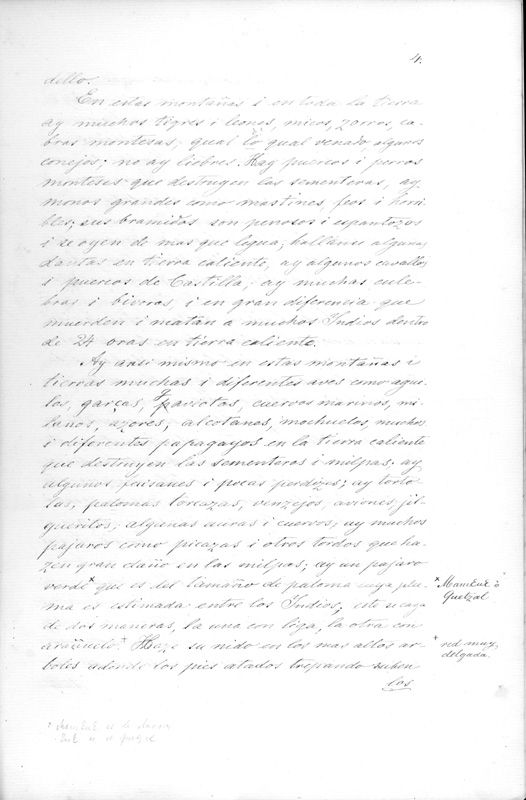 4.
dello.
En estas montañas i en toda la tierra
ay muchos tigres i leones, micos, zorros, ca-
bras montesas; qual lo qual venado algunos
conejos; no ay liebres. Hay puercos i perros
monteses que destruyen las sementeras, ay
monos grandes como mastines, feos i horri
bles; sus bramidos son penosos i espantozos
i se oyen de mas que legua; hallanse algunas
dantas en tierra caliente, ay algunos cavallos
i puercos de Castilla; ay muchas cule-
bras i bivoras, i en gran diferencia que
muerden i matan a muchos Indios dentro
de 24 oras en tierra caliente.
Ay ansi mismo en estas montañas i
tierras muchas i diferentes aves como agui-
las, garças, gaviotas, cuervos marinos, mi-
lanos, azores, alcotanes, mochuelos, muchos
i diferentes papagayos en la tierra caliente
que destruyen las sementeras i milpas. ay
algunos faisanes i pocas perdizes; ay torto
las, palomas torcazas, venzejos, aviones, jil-
gueritos; algunas auras i cuervos; ay muchos
pajaros como picazas i otros tordos que ha-
zen gran daño en las milpas; ay un pajaro
verde* que es del tamaño de paloma cuya plu-
ma es estimada entre los Indios; este se caza
de dos maneras, la una con liga, la otra con
arañuelo.* Haze su nido en los mas altos ar-
boles adonde los pies atados trepando suben
los
* Quetzal
* red muy
delgada.